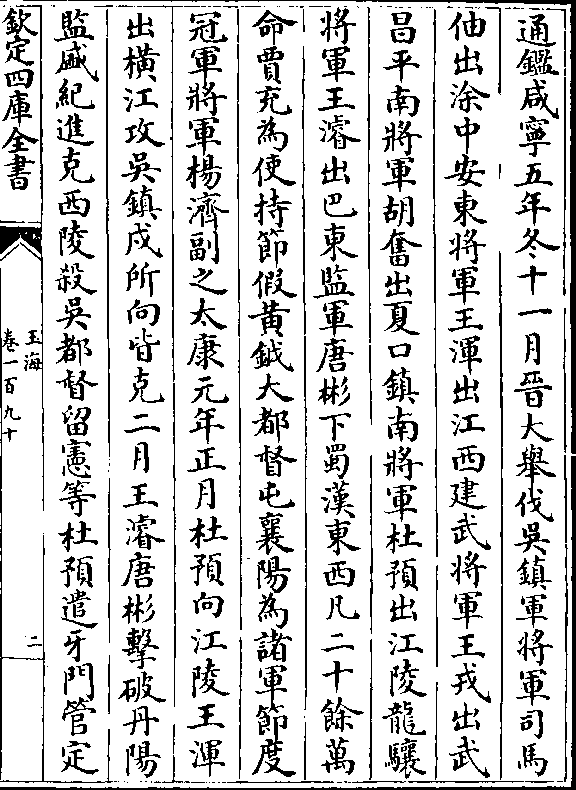 通鑑咸寧五年冬十一月晉大舉伐吳鎮軍將軍司馬
伷出涂中安東將軍王渾出江西建武將軍王戎出武
昌平南將軍胡奮出夏口鎮南將軍杜預出江陵龍驤
將軍王濬出巴東監軍唐彬下蜀漢東西凡二十餘萬
命賈充為使持節假黃鉞大都督屯襄陽為諸軍節度
冠軍將軍楊濟副之太康元年正月杜預向江陵王渾
出橫江攻吳鎮戍所向皆克二月王濬唐彬擊破丹陽
監盛紀進克西陵殺吳都督留憲等杜預遣牙門管定
欽定四庫全書
玉海
卷一百九十
二